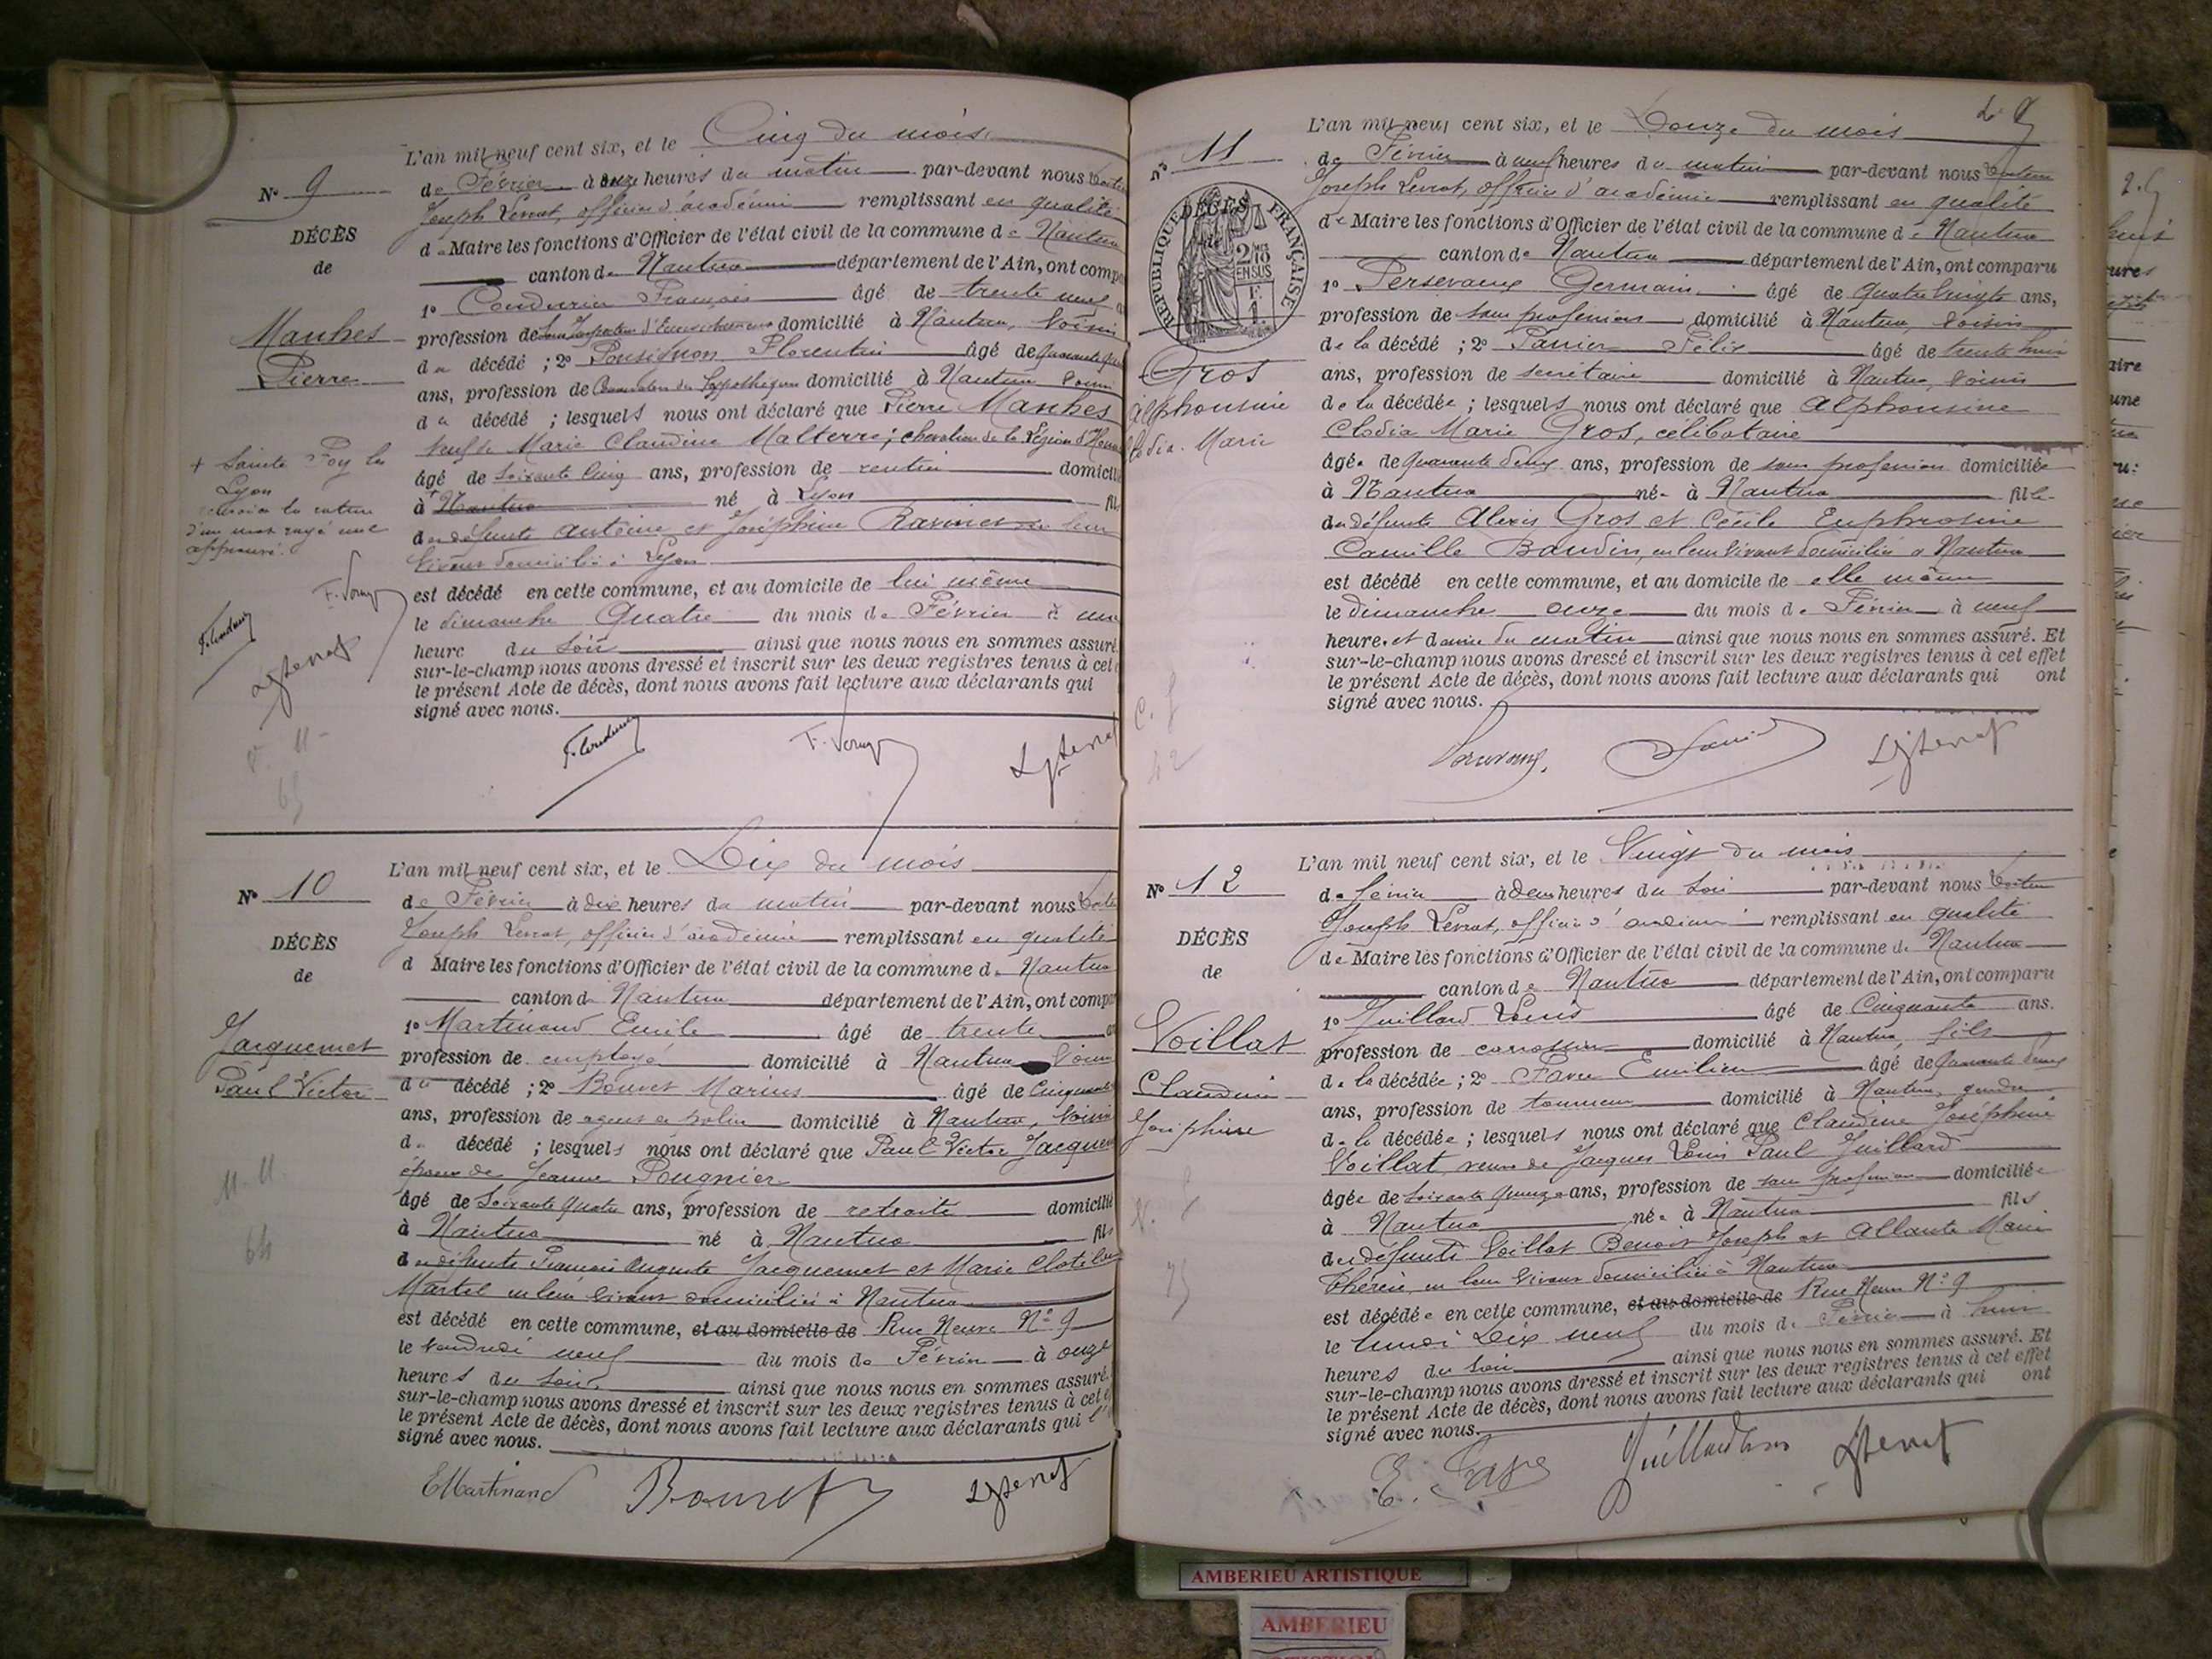 L'an mil neuf cent six, et le Cinq du mois
N° 9
de Février à onze heures du matin par-devant nous
Joseph Levrat, officier d'académie remplissant en qualité
DÉCÈS
de Maire les fonctions d'Officier de l'état civil de la commune de Nantua
de
canton de Nantua département de l'Ain, ont comp
1° Conduriu François âgé de trente neuf
Manhes
profession de domicilié à Nantua, voisin
Pierre
du décédé ; 2° Ponsignon Florentin âgé de quarante
ans, profession de Conservateur des hypothèques domicilié à Nantua voisin
du décédé ; lesquels nous ont déclaré que Pierre Manhes
veuf de Marie Claudine Malterre ; chevalier de la Légion d'Honn
+ Sainte Foy les
Lyon
âgé de soixante cinq ans, profession de rentier domicilié
à Nantua né à Lyon fils
d'un mot rayé nul
approuvé.
de défunts Antoine et Joséphine en leur
vivant domiciliés à Lyon
est décédé en cette commune, et au domicile de lui même
le dimanche Quatre du mois de Février à une
heure du soir ainsi que nous nous en sommes assuré.
sur-le-champ nous avons dressé et inscrit sur les deux registres tenus à cet
le présent Acte de décès, dont nous avons fait lecture aux déclarants qui
signé avec nous.
65
L'an mil neuf cent six, et le Dix du mois
N° 10
de Février à dix heures du matin par-devant nous
Joseph Levrat, officier d'académie remplissant en qualité
DÉCÈS
d Maire les fonctions d'Officier de l'état civil de la commune de Nantua
de
canton de Nantua département de l'Ain, ont comp
1° Martinand Emile âgé de trente
Jacquemet
profession de employé domicilié à Nantua voisin
Paul Victor
du décédé ; 2° Bouvet Marius âgé de cinquante
ans, profession de agent de police domicilié à Nantua, voisin
du décédé ; lesquels nous ont déclaré que Paul Victor Jacquem
époux de Jeanne Pougnier
âgé de soixante quatre ans, profession de retraité domicilié
à Nantua né à Nantua fils
de défunts François Auguste Jacquemet et Marie Clotilde
Martel en leur vivant domiciliés à Nantua
est décédé en cette commune, et au domicile de Rue Neuve N° 9
le vendredi neuf du mois de Février à onze
heures du soir ainsi que nous nous en sommes assuré.
sur-le-champ nous avons dressé et inscrit sur les deux registres tenus à cet
le présent Acte de décès, dont nous avons fait lecture aux déclarants qui
signé avec nous.
M. M.
64
EMartinand Bouvet
L'an mil neuf cent six, et le Douze du mois
N° 11
de Février à neuf heures du matin par-devant nous
Joseph Levrat, officier d'académie remplissant en qualité
RÉPUBLIQUE FRANÇAISE
DÉCÈS
de
de Maire les fonctions d'Officier de l'état civil de la commune de Nantua
canton de Nantua département de l'Ain, ont comparu
1° Persevaux Germain âgé de quatre vingts ans,
profession de sans profession domicilié à Nantua, voisin
de la décédé ; 2° Panier Félix âgé de trente huit
Gros
ans, profession de secrétaire domicilié à Nantua, voisin
Alphonsine
de la décédée ; lesquels nous ont déclaré que Alphonsine
Clodia Marie
Clodia Marie Gros, célibataire
âgée de quarante deux ans, profession de sans profession domiciliée
à Nantua née à Nantua fille
de défunts Alexis Gros et Cécile Euphrosine
Camille Baudin, en leur vivant domiciliés à Nantua
est décédé en cette commune, et au domicile de elle même
le dimanche onze du mois de Février à neuf
heures et demie du matin ainsi que nous nous en sommes assuré. Et
sur-le-champ nous avons dressé et inscrit sur les deux registres tenus à cet effet
le présent Acte de décès, dont nous avons fait lecture aux déclarants qui ont
signé avec nous.
C. f
42
L'an mil neuf cent six, et le Vingt du mois
N° 12
de Février à deux heures du soir par-devant nous
Joseph Levrat, officier d'académie remplissant en qualité
DÉCÈS
de Maire les fonctions d'Officier de l'état civil de la commune de Nantua
de
canton de Nantua département de l'Ain, ont comparu
1° Juillard Louis âgé de Cinquante ans.
Voillat
profession de carrossier domicilié à Nantua, fils
Claudine
de la décédée ; 2° Favre Emilien âgé de quarante deux
ans, profession de tourneur domicilié à Nantua, gendre
Joséphine
de la décédée ; lesquels nous ont déclaré que Claudine Joséphine
Voillat, veuve de Jacques Louis Paul Juillard
âgée de soixante quinze ans, profession de sans profession domiciliée
à Nantua née à Nantua fils
de défunts Voillat Benoit Joseph et Allante Marie
Thérèse, en leur vivant domiciliés à Nantua
est décédée en cette commune, et au domicile de Rue Neuve N° 9
le lundi Dix neuf du mois de Février à huit
heures du soir ainsi que nous nous en sommes assuré. Et
sur-le-champ nous avons dressé et inscrit sur les deux registres tenus à cet effet
le présent Acte de décès, dont nous avons fait lecture aux déclarants qui ont
signé avec nous.
75
E. Favre
AMBERIEU ARTISTIQUE
AMBERIEU